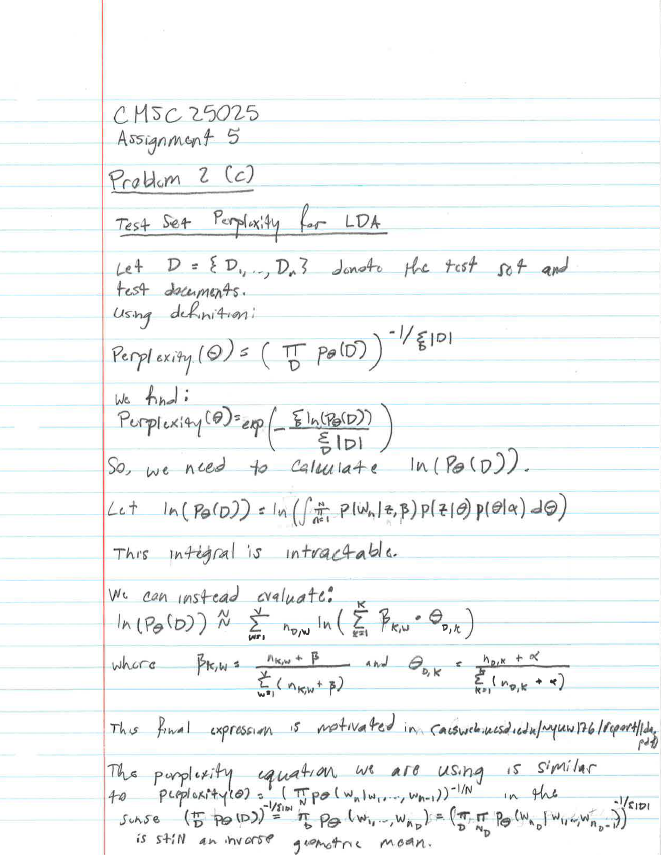 CMSC 25025
Assignment 5
Problem 2 (c)
Test Set Perplexity for LDA
Let D = { D₁, ..., Dₙ } denote the test set and
test documents.
Using definition:
Perplexity (Θ) = ( ∏_D pθ(D) )^(-1/Σ_D |D|)
We find:
Perplexity (Θ) = exp ( - Σ_D ln(Pθ(D)) / Σ_D |D| )
So, we need to calculate ln(Pθ(D)).
Let ln(Pθ(D)) = ln( ∫ ∏_{n=1}^{N} P(wₙ|z,β) p(z|θ) p(θ|α) dθ)
This integral is intractable.
We can instead evaluate:
ln(Pθ(D)) ≈ Σ_{w=1}^{V} n_{D,w} ln ( Σ_{k=1}^{K} β_{k,w} · Θ_{D,k} )
where β_{k,w} = (n_{k,w} + β) / Σ_{w=1}^{V} (n_{k,w} + β) and Θ_{D,k} = (n_{D,k} + α) / Σ_{k=1}^{K} (n_{D,k} + α)
This final expression is motivated in
The perplexity equation we are using is similar
to perplexity(θ) = ( ∏_N pθ(wₙ|w₁, ..., wₙ₋₁))^(-1/N) in the
sense (∏_D pθ(D))^(-1/Σ|D|) = ∏_D Pθ(w₁, ..., w_{n_D}) = (∏_D ∏_{N_D} Pθ(w_{n_D}|w₁, ..., w_{n_D-1}))^(-1/Σ|D|)
is still an inverse geometric mean.